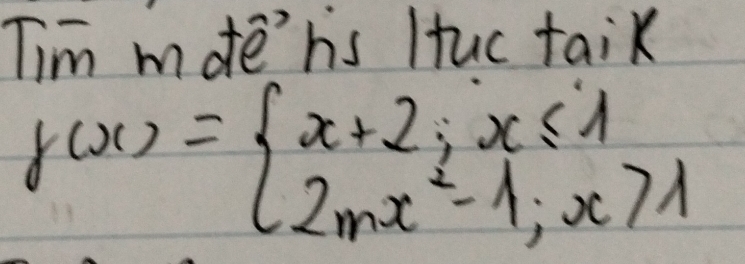 Tìm m để hs ltục tại x
f(x) = { x + 2 ; x ≤ 1
2mx² - 1 ; x > 1